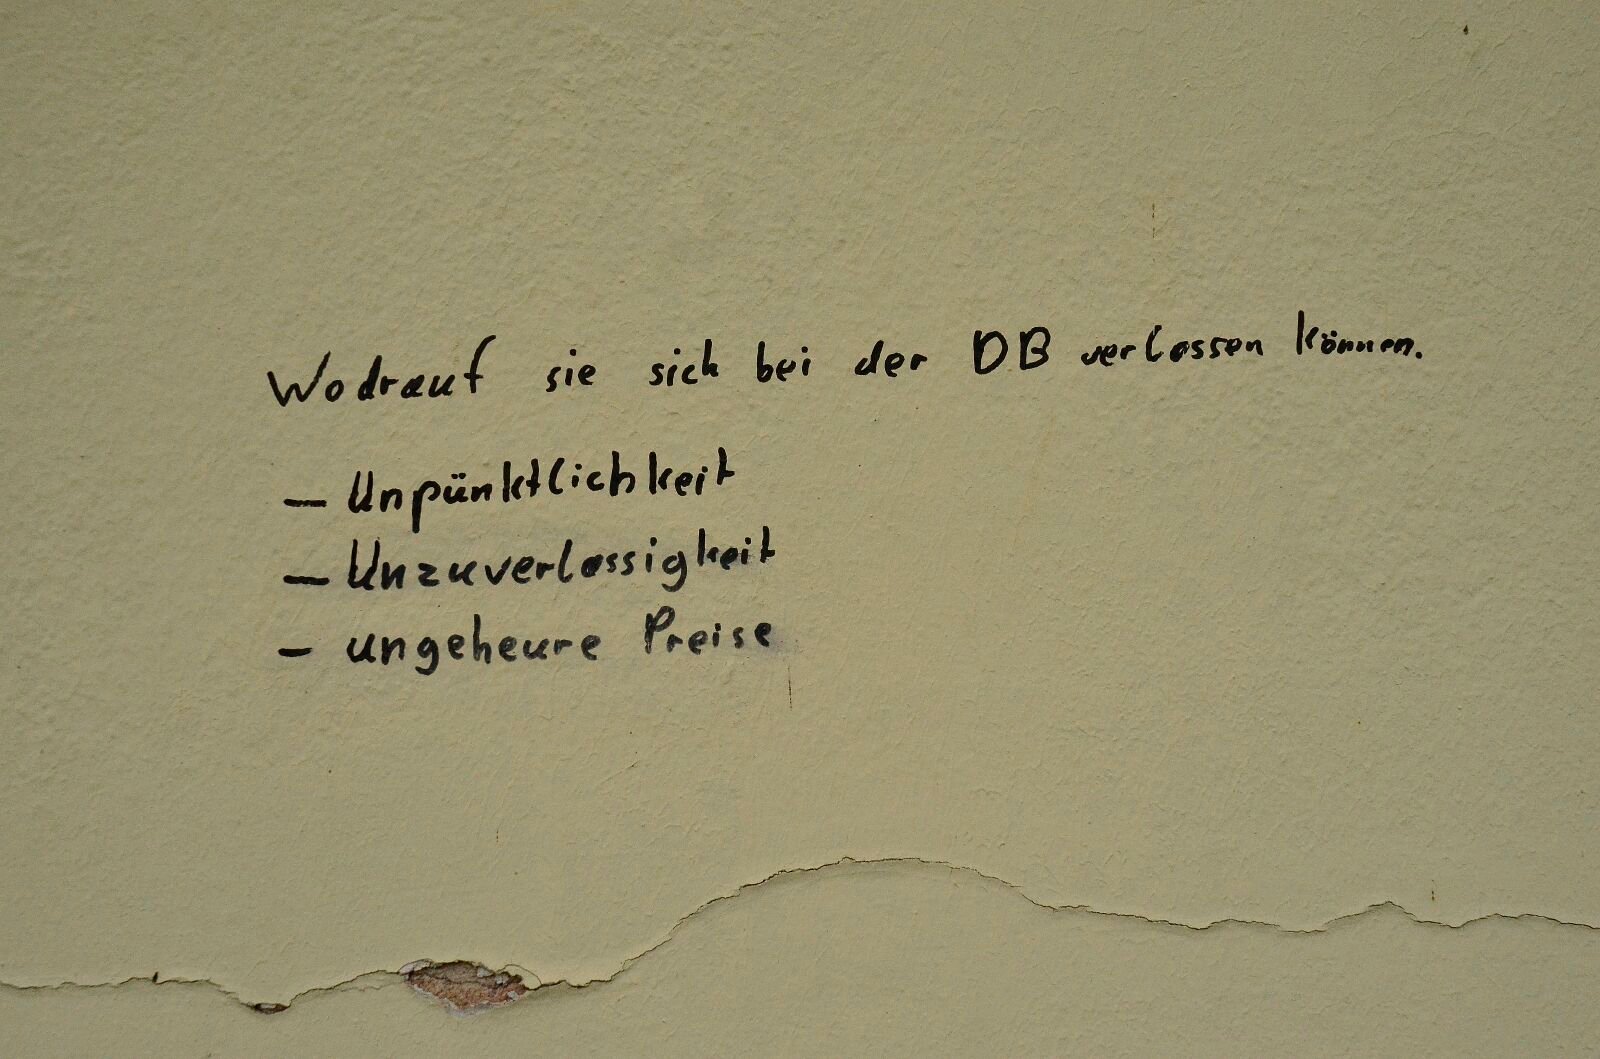 Wodrauf sie sich bei der DB verlassen können.
– Unpünktlichkeit
– Unzuverlassigkeit
– ungeheure Preise